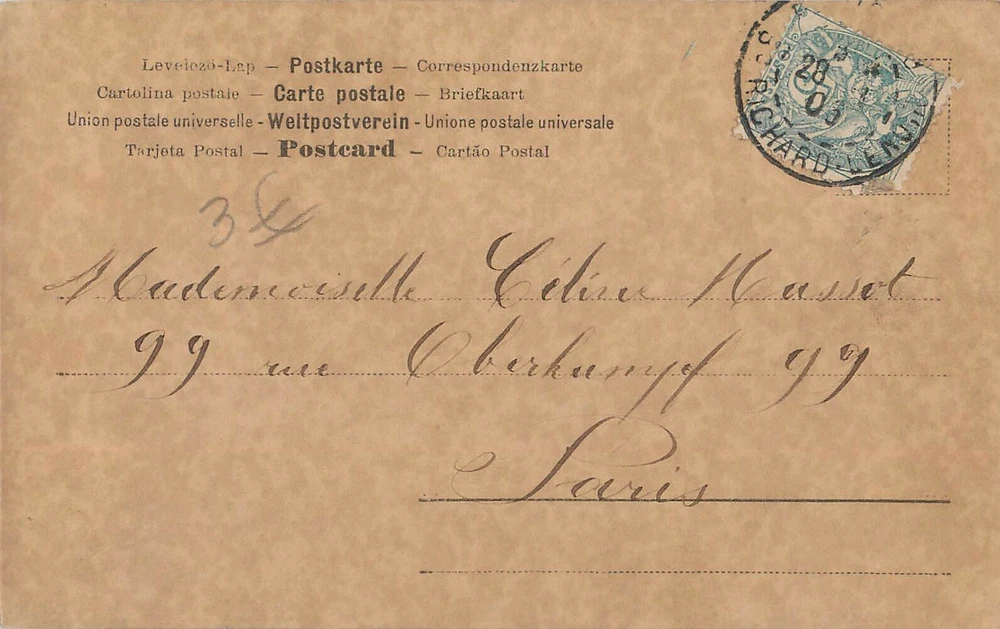 Levelező-Lap – Postkarte – Correspondenzkarte
Cartolina postale – Carte postale – Briefkaart
Union postale universelle - Weltpostverein - Unione postale universale
Tarjeta Postal – Postcard – Cartão Postal
28
03
RICHARD-LENOIR
3
Mademoiselle Céline Massot
99 rue Oberkampf 99
Paris